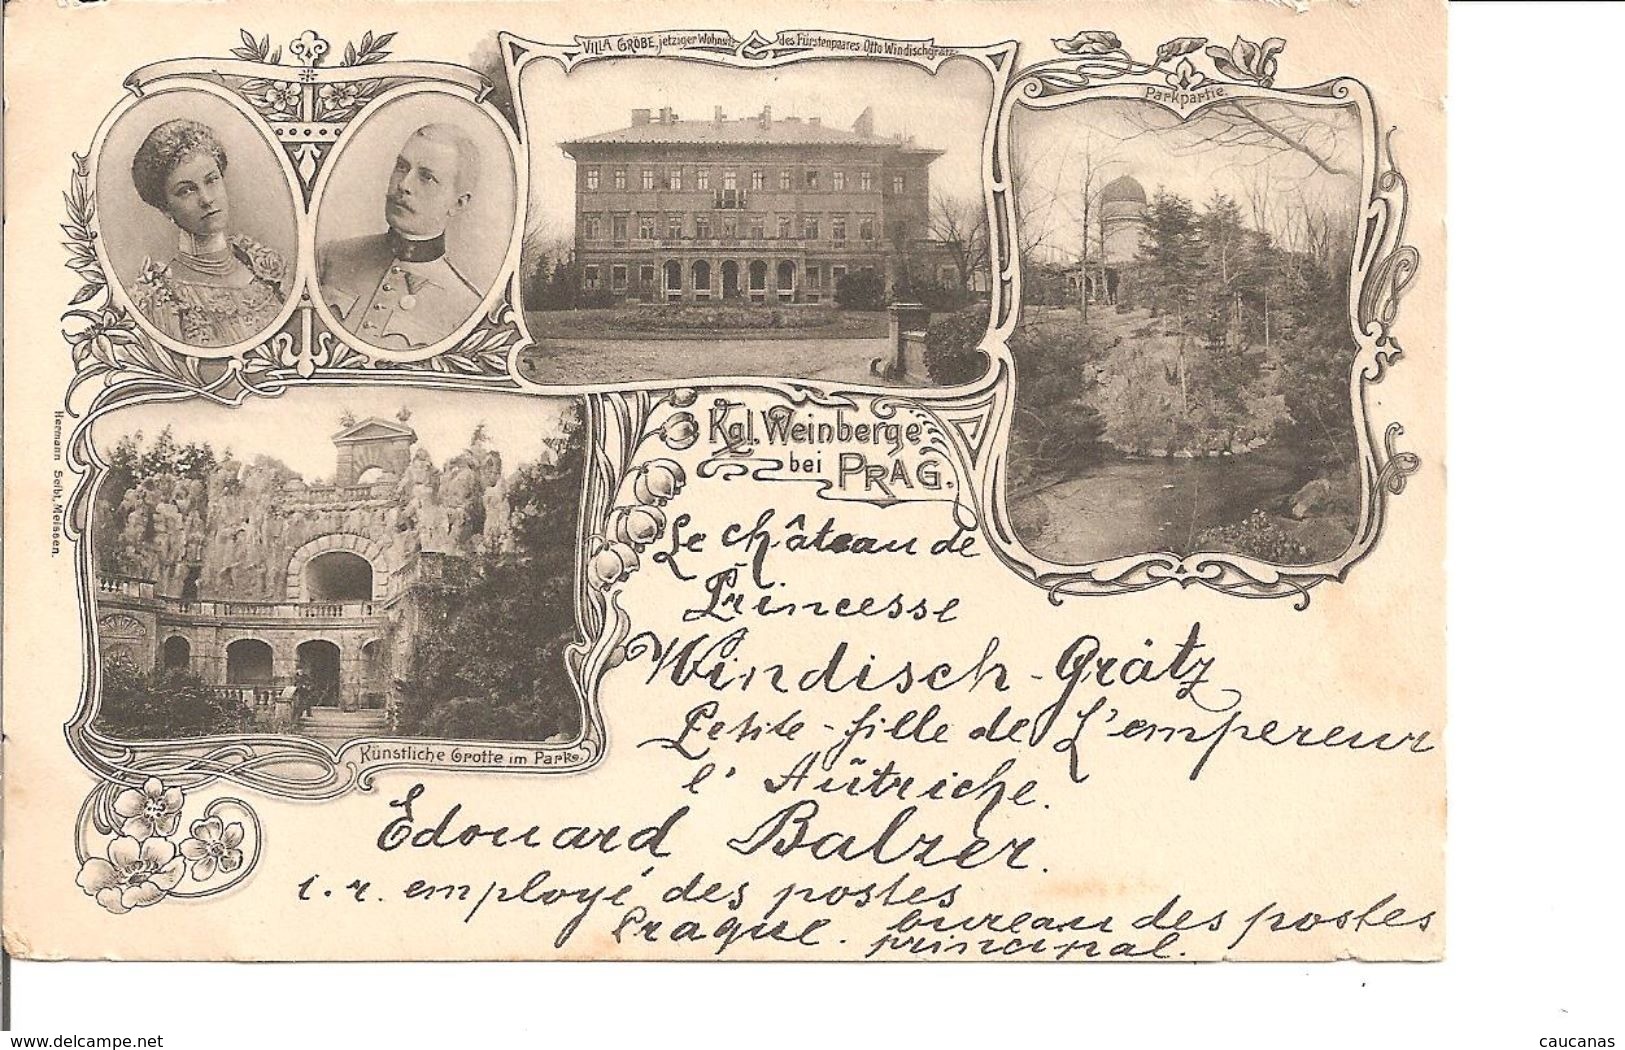 VILLA GRÖBE, jetziger Wohnsitz des Fürstenpaares Otto Windischgrätz.
Parkpartie.
Kgl. Weinberge
bei PRAG.
Hermann Seibt, Meissen.
Künstliche Grotte im Park.
Le château de
Princesse
Windisch-Grätz
Petite-fille de L'empereur
l'Aûtriche.
Edouard Balzer.
i. r. employé des postes
Prague. bureau des postes
principal.
delcampe.net
caucanas